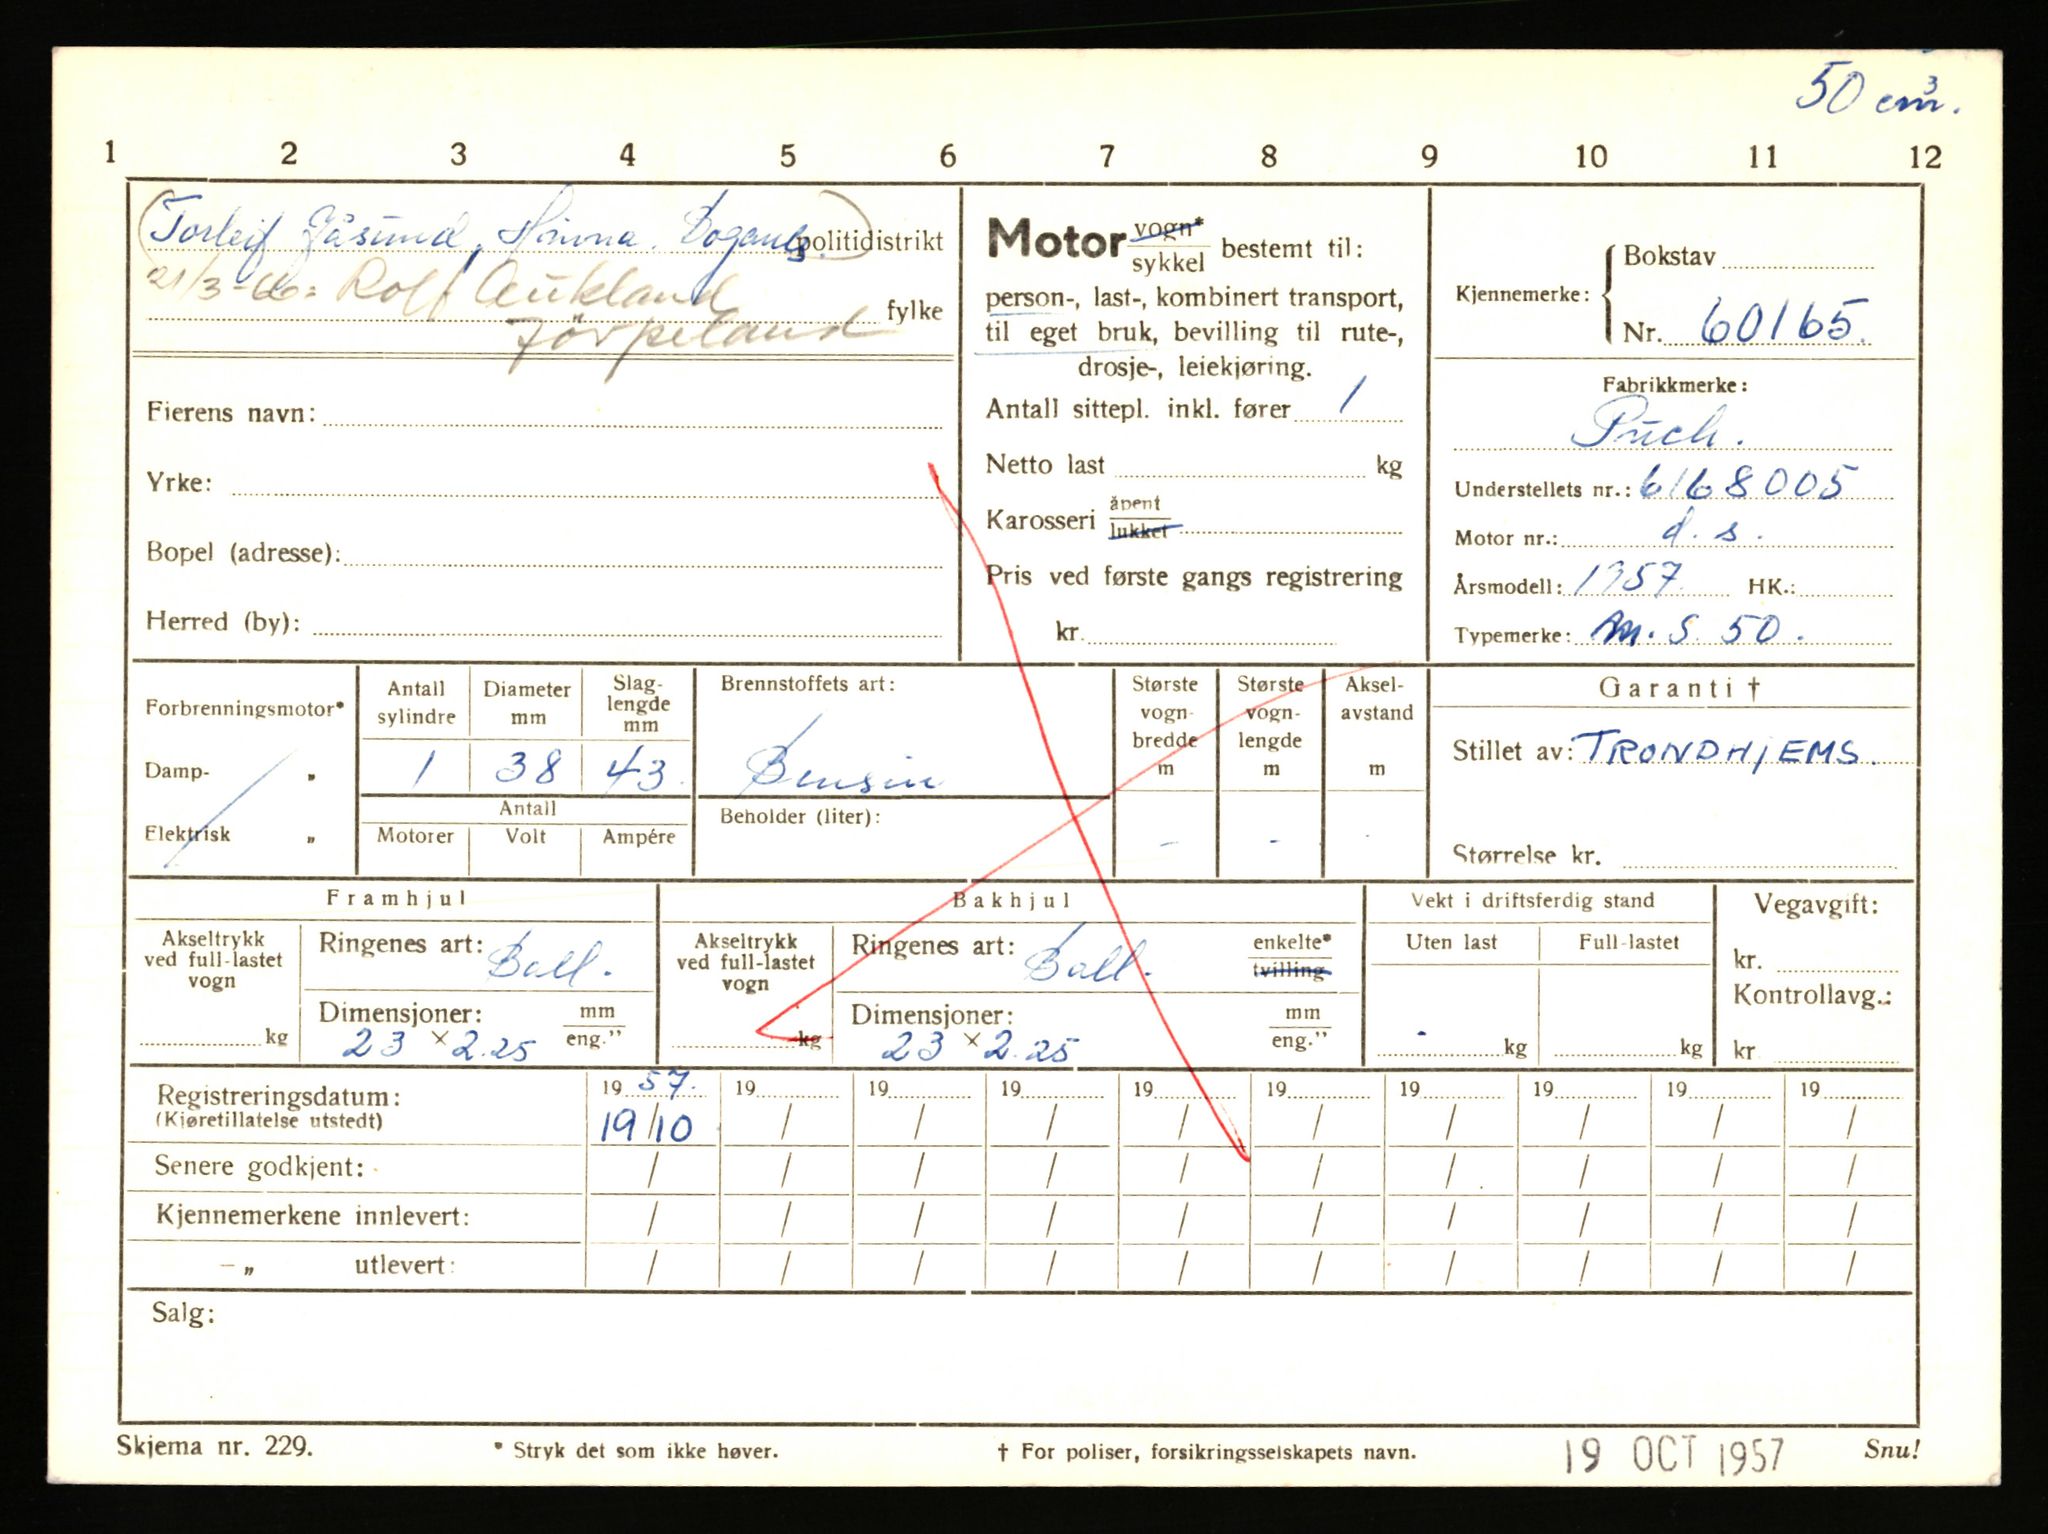 50 cm³.
1 2 3 4 5 6 7 8 9 10 11 12
Torleif Jåsund, Hinna. politidistrikt
21/3-66: Rolf Aukland fylke
Jörpeland
Eierens navn:
Yrke:
Bopel (adresse):
Herred (by):
Motor vogn* / sykkel bestemt til:
person-, last-, kombinert transport,
til eget bruk, bevilling til rute-,
drosje-, leiekjøring.
Antall sittepl. inkl. fører 1
Netto last kg
Karosseri åpent / lukket
Pris ved første gangs registrering
kr.
Kjennemerke: Bokstav
Nr. 60165.
Fabrikkmerke:
Puch.
Understellets nr.: 6168005
Motor nr.: d. s.
Årsmodell: 1957. HK.:
Typemerke: M. S. 50.
Forbrenningsmotor*
Damp- „
Elektrisk „
Antall sylindre
Diameter mm
Slag- lengde mm
1 38 43.
Antall
Motorer Volt Ampére
Brennstoffets art:
Bensin
Beholder (liter):
Største vogn- bredde m
Største vogn- lengde m
Aksel- avstand m
- -
Garanti †
Stillet av: TRONDHJEMS.
Størrelse kr.
Framhjul
Akseltrykk ved full-lastet vogn
kg
Ringenes art: Ball.
Dimensjoner: mm / eng."
23 × 2.25
Bakhjul
Akseltrykk ved full-lastet vogn
kg
Ringenes art: Ball. enkelte* / tvilling
Dimensjoner: mm / eng."
23 × 2.25
Vekt i driftsferdig stand
Uten last Full-lastet
kg kg
Vegavgift:
kr.
Kontrollavg.:
kr
Registreringsdatum: 19 57. 19 19 19 19 19 19 19 19 19
(Kjøretillatelse utstedt) 19/10 / / / / / / / / /
Senere godkjent: / / / / / / / / / /
Kjennemerkene innlevert: / / / / / / / / / /
—„ utlevert: / / / / / / / / / /
Salg:
Skjema nr. 229. * Stryk det som ikke høver. † For poliser, forsikringsselskapets navn. 19 OCT 1957 Snu!